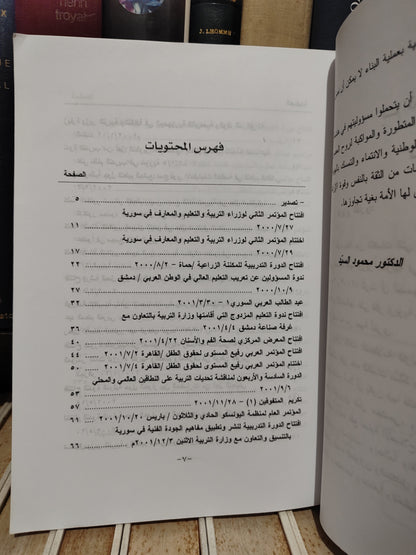 henri
troyat
J. LHOMME
ية بعملية البناء لا يمكن أن
أن يتحملوا مسؤوليتهم في
المتطورة والمواكبة لروح
لوطنية والانتماء والتمسك
ات من الثقة بالنفس وقوة
ل لها الأمة بغية تجاوزها.
الدكتور محمود السيد
فهرس المحتويات
الصفحة
- تصدير ........ ٥
افتتاح المؤتمر الثاني لوزراء التربية والتعليم والمعارف في سورية
٢٠٠٠/٧/٢٧ ........ ١١
اختتام المؤتمر الثاني لوزراء التربية والتعليم والمعارف في سورية
٢٠٠٠/٧/٢٩ ........ ١٧
افتتاح الدورة التدريبية للمكننة الزراعية /حماة – ٢٠٠٠/٨/٢ ........ ٢٢
ندوة المسؤولين عن تعريب التعليم العالي في الوطن العربي / دمشق
٢٠٠٠/١٠/٩ ........ ٢٧
عيد الطالب العربي السوري١ - ٢٠٠١/٣/٣٠ ........ ٣٢
افتتاح ندوة التعليم المزدوج التي أقامتها وزارة التربية بالتعاون مع
غرفة صناعة دمشق ٢٠٠١/٤/٤ ........ ٣٦
افتتاح المعرض المركزي لصحة الفم والأسنان ٢٠٠١/٤/٢٢ ........ ٤٠
افتتاح المؤتمر العربي رفيع المستوى لحقوق الطفل /القاهرة ٢٠٠١/٧/٢ ........ ٤٤
اختتام المؤتمر العربي رفيع المستوى لحقوق الطفل /القاهرة ٢٠٠١/٧/٤ ........ ٥٠
الدورة السادسة والأربعون لمناقشة تحديات التربية على النطاقين العالمي والمحلي
٢٠٠١/٩/٦ ........ ٥٣
تكريم المتفوقين (١) – ٢٠٠١/١١/٢٨ ........ ٥٧
المؤتمر العام لمنظمة اليونسكو الحادي والثلاثون / باريس ٢٠٠١/١٠/٢٠ ........ ٦١
افتتاح الدورة التدريبية لنشر وتطبيق مفاهيم الجودة الفنية في سورية
بالتنسيق والتعاون مع وزارة التربية الاثنين ٢٠٠١/١٢/٣م ........ ٦٦
-٧-